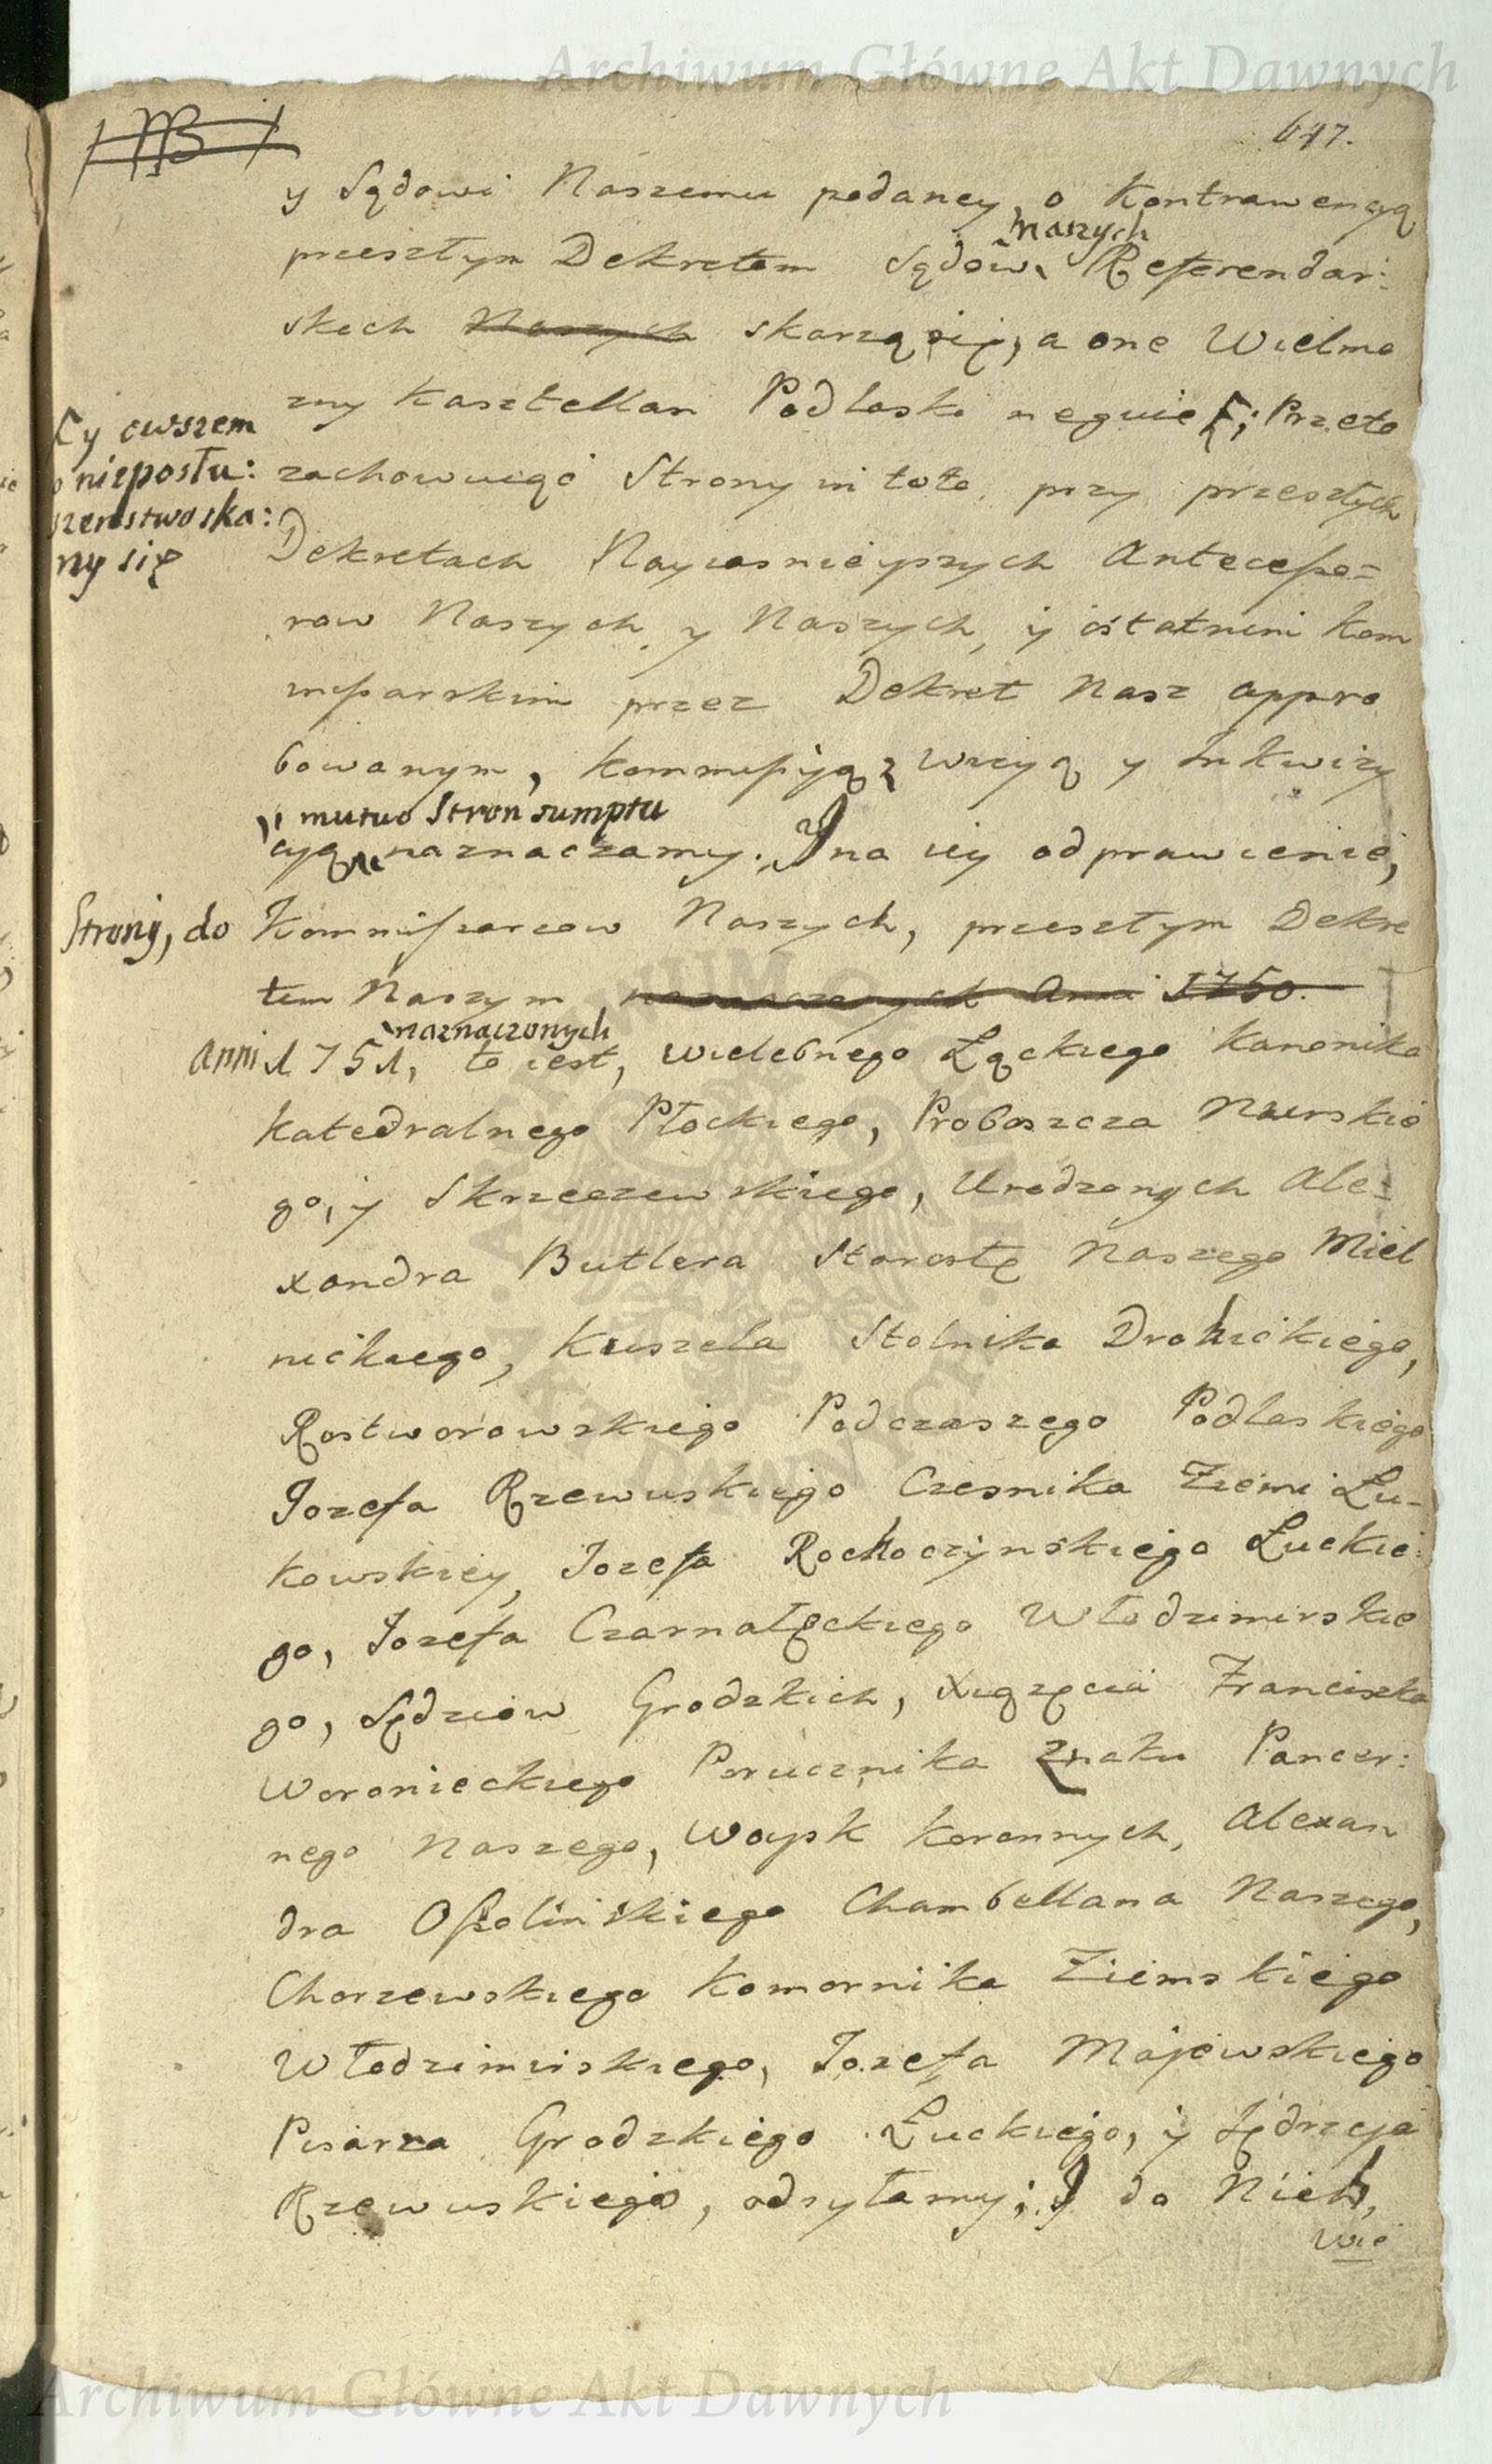 Archiwum Główne Akt Dawnych
647.
y Sądowi Naszemu podaney, o Kontrawencyą
naszych
przeszłym Dekretem Sądów Referendar:
skich Naszych skarzą się, a one Wielmo
zny Kasztellan Podlaski neguie; Przeto
Ey owszem
o nieposłu:
szenstwo ska:
ny się
zachowuiąć Strony in toto przy przeszłych
Dekretach Nayiasnieyszych Antecesso=
row Naszych, y Naszych, y ostatnim Kom
missarskim przez Dekret Nasz appro
bowanym, Kommissyą z Wizyą y Inkwizy
mutuo Stron sumptu
cyą naznaczamy. I na iey odprawienie,
Strony, do Kommissarzow Naszych, przeszłym Dekre
tem Naszym naznaczonych Anni 1750.
naznaczonych
Anni 1751, to iest, Wielebnego Łąckiego Kanonika
Katedralnego Płockiego, Proboszcza Nurskie
go, y Skrzeszewskiego, Urodzonych Ale=
xandra Butlera Starostę Naszego Miel
nickiego, Kuszela Stolnika Drohickiego,
Rostworowskiego Podczaszego Podlaskiego
Jozefa Rzewuskiego Czesnika Ziemi Łu-
kowskiey, Jozefa Rochoczynskiego Łuckie:
go, Jozefa Czarnałęckiego Włodzimirskie
go, Sędziów Grodzkich, Xiążęcia Franciszka
Woronieckiego Porucznika Znaku Pancer:
nego Naszego, Woysk Koronnych, Alexan
dra Ossolinskiego Chambellana Naszego,
Chorzewskiego Komornika Ziemskiego
Włodzimirskiego, Jozefa Majewskiego
Pisarza Grodzkiego Łuckiego, y Jędrzeja
Rzewuskiego, odsyłamy; I do Nich,
wie
Archiwum Główne Akt Dawnych